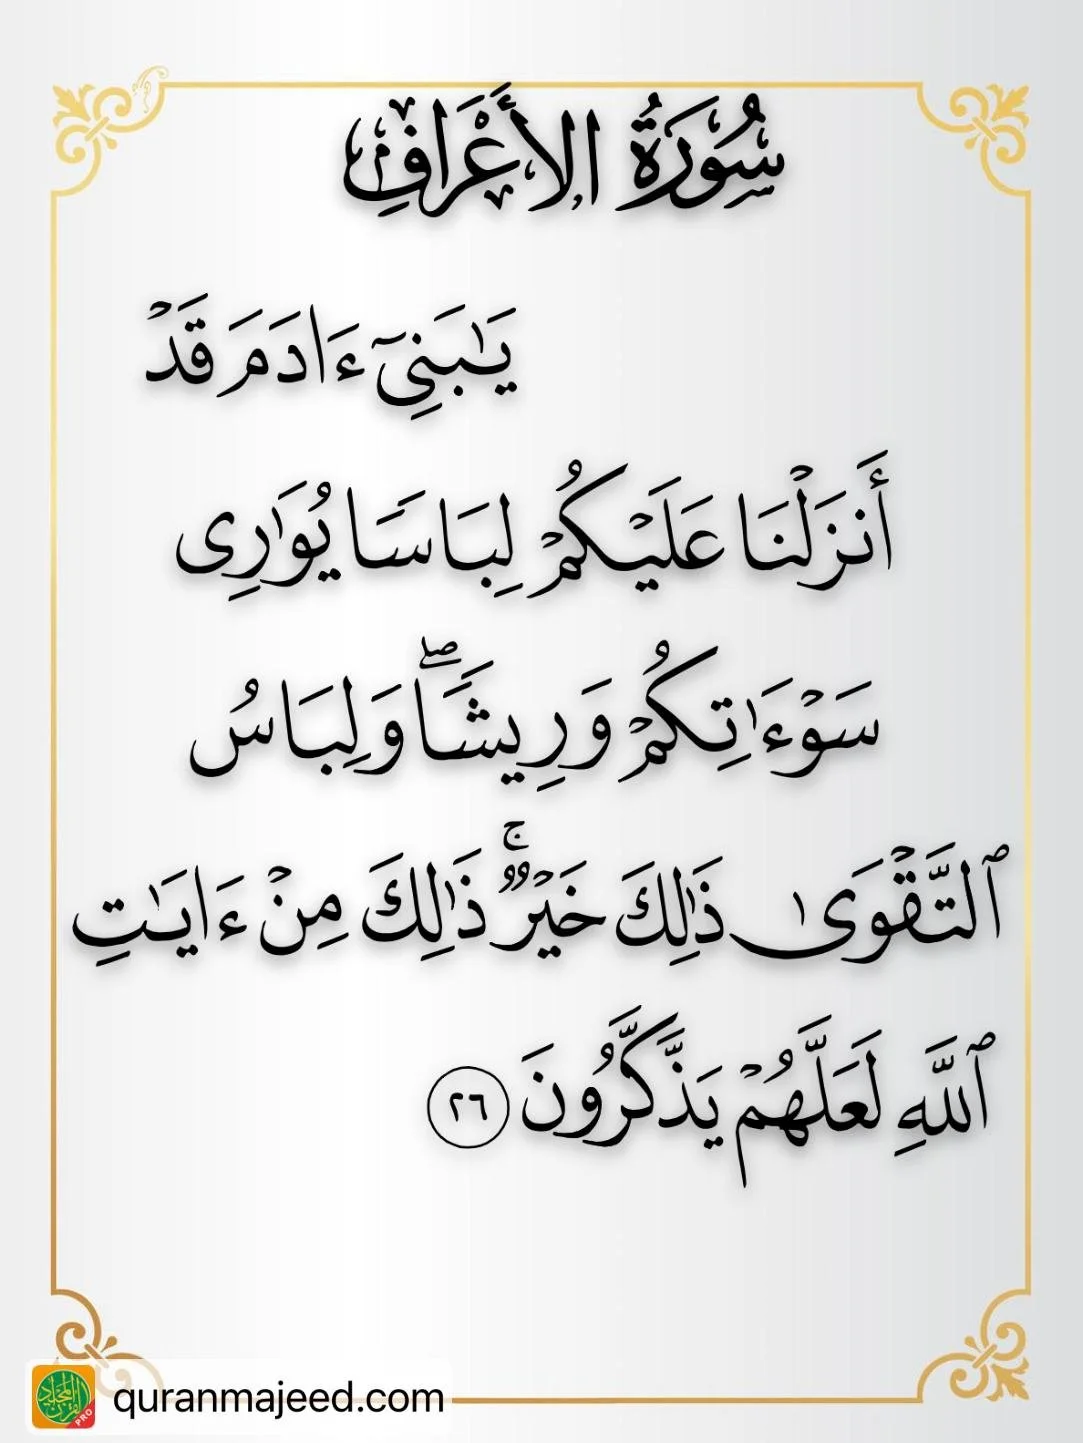 سُورَةُ الأَعْرَافِ
يَـٰبَنِىٓ ءَادَمَ قَدْ
أَنزَلْنَا عَلَيْكُمْ لِبَاسًا يُوَٰرِى
سَوْءَٰتِكُمْ وَرِيشًا ۖ وَلِبَاسُ
ٱلتَّقْوَىٰ ذَٰلِكَ خَيْرٌ ۚ ذَٰلِكَ مِنْ ءَايَـٰتِ
ٱللَّهِ لَعَلَّهُمْ يَذَّكَّرُونَ ٢٦
quranmajeed.com